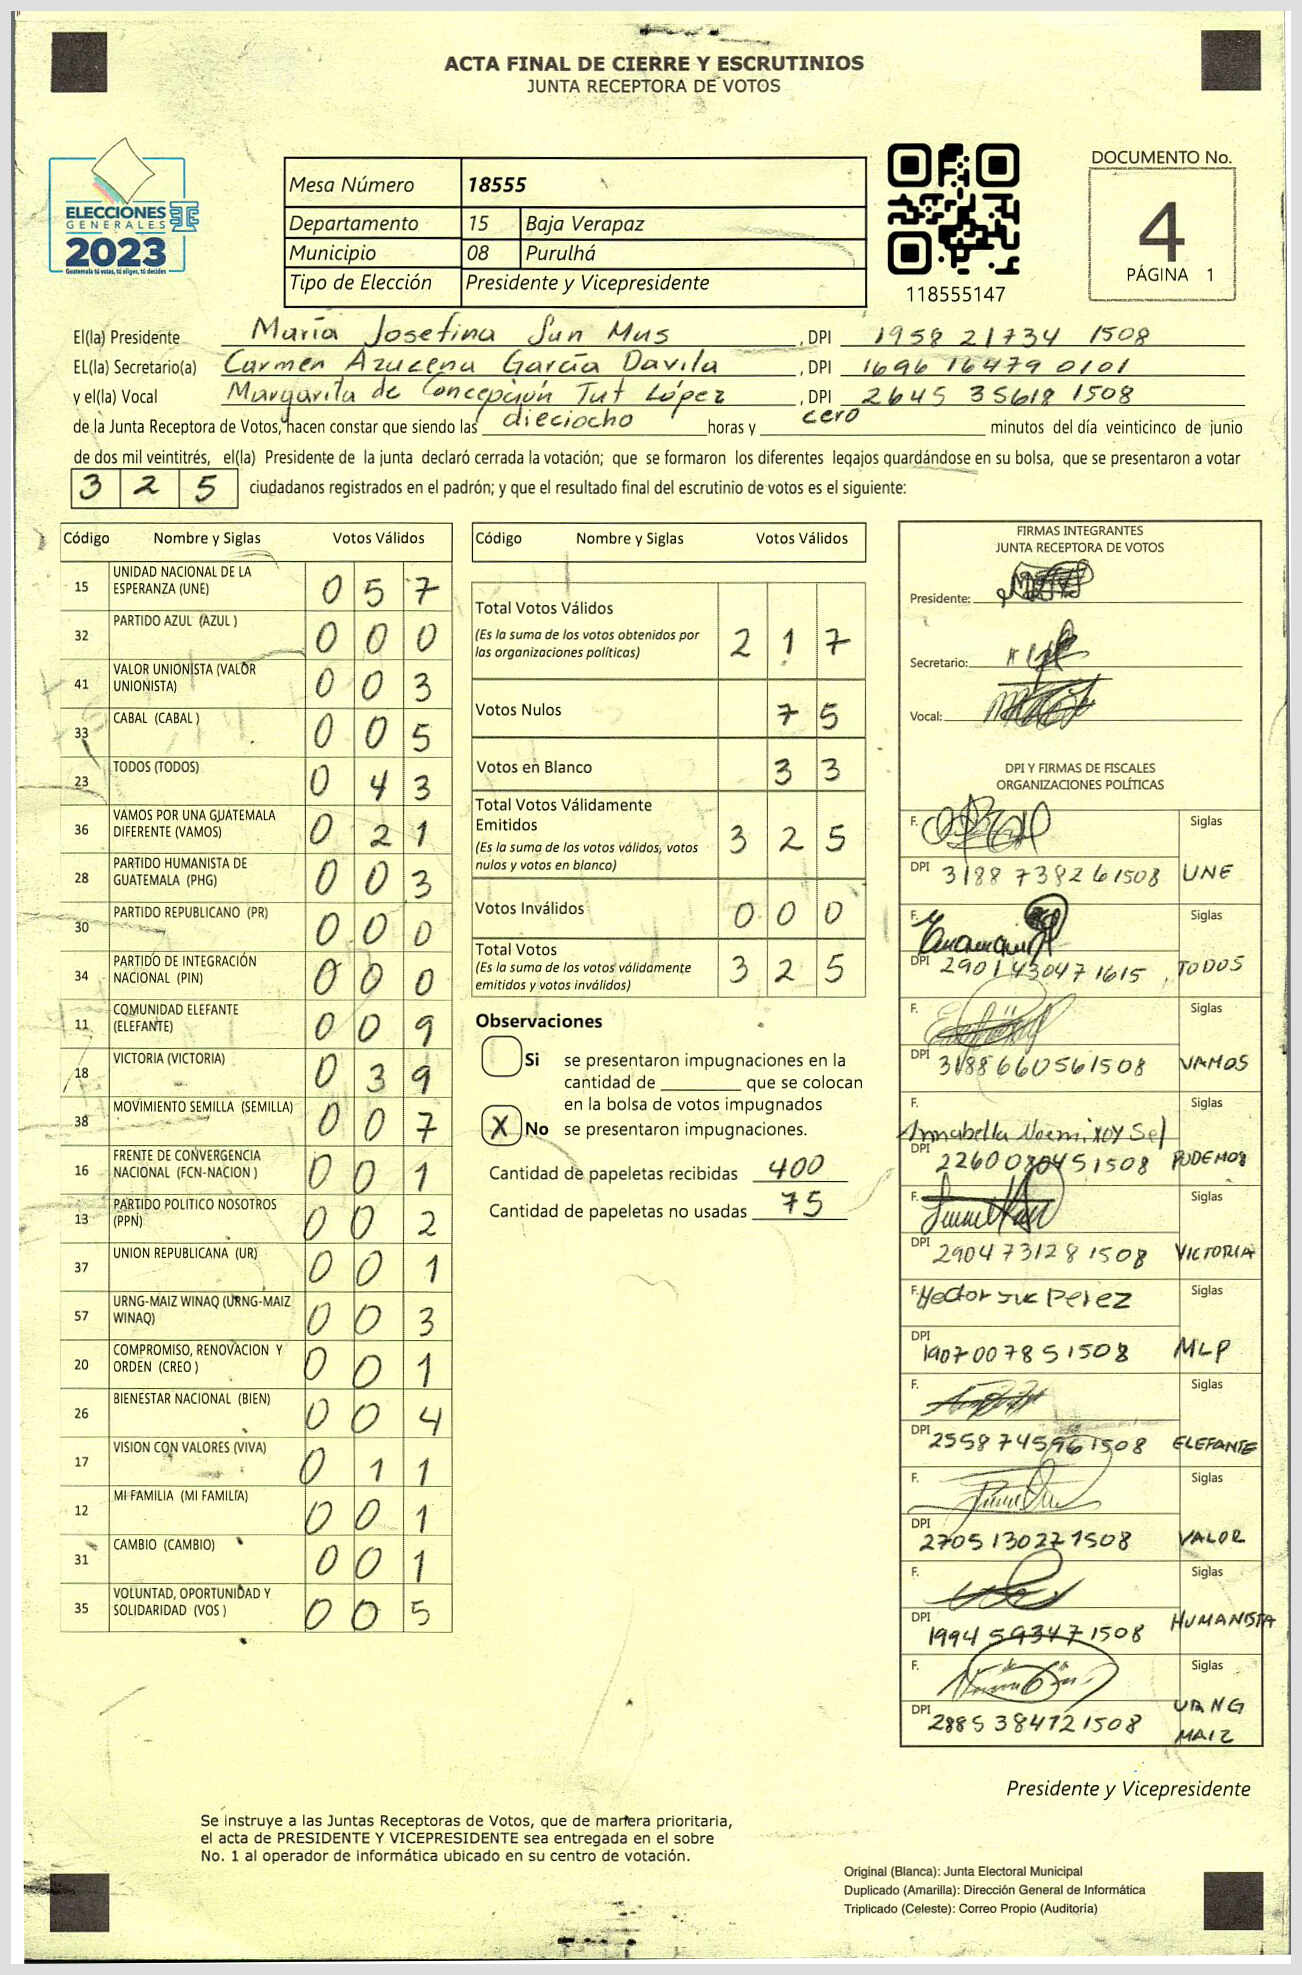 ACTA FINAL DE CIERRE Y ESCRUTINIOS
JUNTA RECEPTORA DE VOTOS
ELECCIONES
GENERALES
2023
Guatemala tú votas, tú eliges, tú decides
Mesa Número 18555
Departamento 15 Baja Verapaz
Municipio 08 Purulhá
Tipo de Elección Presidente y Vicepresidente
118555147
DOCUMENTO No.
4
PÁGINA 1
El(la) Presidente María Josefina Sun Mus , DPI 1958 21734 1508
EL(la) Secretario(a) Carmen Azucena García Davila , DPI 1696 16479 0101
y el(la) Vocal Margarita de Concepción Tut López , DPI 2645 35618 1508
de la Junta Receptora de Votos, hacen constar que siendo las dieciocho horas y cero minutos del día veinticinco de junio
de dos mil veintitrés, el(la) Presidente de la junta declaró cerrada la votación; que se formaron los diferentes legajos guardándose en su bolsa, que se presentaron a votar
3 2 5 ciudadanos registrados en el padrón; y que el resultado final del escrutinio de votos es el siguiente:
Código Nombre y Siglas Votos Válidos
15 UNIDAD NACIONAL DE LA ESPERANZA (UNE) 0 5 7
32 PARTIDO AZUL (AZUL ) 0 0 0
41 VALOR UNIONISTA (VALOR UNIONISTA) 0 0 3
33 CABAL (CABAL ) 0 0 5
23 TODOS (TODOS) 0 4 3
36 VAMOS POR UNA GUATEMALA DIFERENTE (VAMOS) 0 2 1
28 PARTIDO HUMANISTA DE GUATEMALA (PHG) 0 0 3
30 PARTIDO REPUBLICANO (PR) 0 0 0
34 PARTIDO DE INTEGRACIÓN NACIONAL (PIN) 0 0 0
11 COMUNIDAD ELEFANTE (ELEFANTE) 0 0 9
18 VICTORIA (VICTORIA) 0 3 9
38 MOVIMIENTO SEMILLA (SEMILLA) 0 0 7
16 FRENTE DE CONVERGENCIA NACIONAL (FCN-NACION ) 0 0 1
13 PARTIDO POLITICO NOSOTROS (PPN) 0 0 2
37 UNION REPUBLICANA (UR) 0 0 1
57 URNG-MAIZ WINAQ (URNG-MAIZ WINAQ) 0 0 3
20 COMPROMISO, RENOVACION Y ORDEN (CREO ) 0 0 1
26 BIENESTAR NACIONAL (BIEN) 0 0 4
17 VISION CON VALORES (VIVA) 0 1 1
12 MI FAMILIA (MI FAMILIA) 0 0 1
31 CAMBIO (CAMBIO) 0 0 1
35 VOLUNTAD, OPORTUNIDAD Y SOLIDARIDAD (VOS ) 0 0 5
Código Nombre y Siglas Votos Válidos
Total Votos Válidos
(Es la suma de los votos obtenidos por
las organizaciones políticas) 2 1 7
Votos Nulos 7 5
Votos en Blanco 3 3
Total Votos Válidamente
Emitidos
(Es la suma de los votos válidos, votos
nulos y votos en blanco) 3 2 5
Votos Inválidos 0 0 0
Total Votos
(Es la suma de los votos válidamente
emitidos y votos inválidos) 3 2 5
Observaciones
Si se presentaron impugnaciones en la
cantidad de ________ que se colocan
en la bolsa de votos impugnados
X No se presentaron impugnaciones.
Cantidad de papeletas recibidas 400
Cantidad de papeletas no usadas 75
FIRMAS INTEGRANTES
JUNTA RECEPTORA DE VOTOS
Presidente:
Secretario:
Vocal:
DPI Y FIRMAS DE FISCALES
ORGANIZACIONES POLÍTICAS
F. Siglas
DPI 3188 73826 1508 UNE
F. Siglas
DPI 2901 43047 1615 TODOS
F. Siglas
DPI 3188 66056 1508 VAMOS
F. Annabella Noemi Xoy Sel Siglas
DPI 2260 08045 1508 PODEMOS
F. Siglas
DPI 2904 73128 1508 VICTORIA
F. Hector Suc Perez Siglas
DPI 1907 00785 1508 MLP
F. Siglas
DPI 2558 74596 1508 ELEFANTE
F. Siglas
DPI 2705 13027 1508 VALOR
F. Siglas
DPI 1994 59347 1508 HUMANISTA
F. Siglas
DPI 2885 38472 1508 URNG MAIZ
Presidente y Vicepresidente
Se instruye a las Juntas Receptoras de Votos, que de manera prioritaria,
el acta de PRESIDENTE Y VICEPRESIDENTE sea entregada en el sobre
No. 1 al operador de informática ubicado en su centro de votación.
Original (Blanca): Junta Electoral Municipal
Duplicado (Amarilla): Dirección General de Informática
Triplicado (Celeste): Correo Propio (Auditoría)